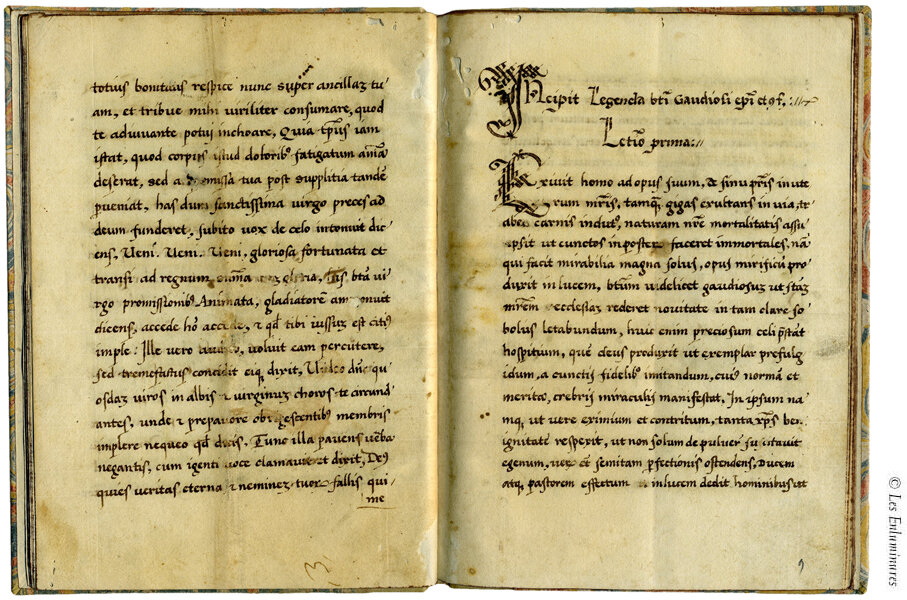 totius bonitatis respice nunc super ancillaz tu
am, et tribue mihi uiriliter consumare, quod
te adiuuante potui inchoare, Quia tp̃us iam
istat, quod corpus istud dolorib9 fatigatum aĩam
deserat, sed a missa tua post supplitia tandẽ
ꝑueniat, has dum sanctissima uirgo preces ad
deum funderet, subito uox de celo intonuit dic
ens, Ueni. Ueni. Ueni, gloriosa fortunata et
transi ad regnum gloria, btã ui
rgo promissionib9 Animata, gladiatorẽ amonuit
dicens, accede ho᷒ accede, ⁊ qđ tibi iussuz est citi9
imple: Ille uero uoluit eam percutere,
sed tremefactus concidit eiq; dixit, Uideo dñe qu
osdaz uiros in albis ⁊ uirginuz choros te circund
antes, unde ⁊ obrigescentibus membris
implere nequeo qđ dicis. Tunc illa pauens uẽba
negantis, cum igenti uoce clamauit et dixit, De9
quies ueritas eterna ⁊ neminez tuorz fallis qui
me
INcipit Legenda bt̃i Gaudiosi ep̃i et ꝯf.
Lectio prima:
EXiuit homo ad opus suum, de sinu pr̃is in ute
rum mr̃is, tamq; gigas exultans in uia, tr
abea carnis indut9, naturam nr̃e mortalitatis assu
psit ut cunctos in poster faceret immortales, nã
qui facit mirabilia magna solus, opus mirificũ pro
duxit in lucem, bt̃um uidelicet gaudiosuz ut
mr̃em ecclesiaz rederet nouitate in tam clare so
bolus letabundum, huic enim preciosum celi p̃stat
hospitium, quẽ deus produxit ut exemplar prefulg
idum, a cunctis fidelib9 imitandum, cui9 normã et
merita, crebris miraculis manifestat, In ipsum na
mq; ut uere eximium et contritum, tanta xp̃s ben
ignitate respexit, ut non solum de puluer suscitauit
egenum, uerz et semitam ꝑfectionis ostendens, Ducem
atq; pastorem effectum in lucem dedit hominibus ut
9
© Les Enluminures